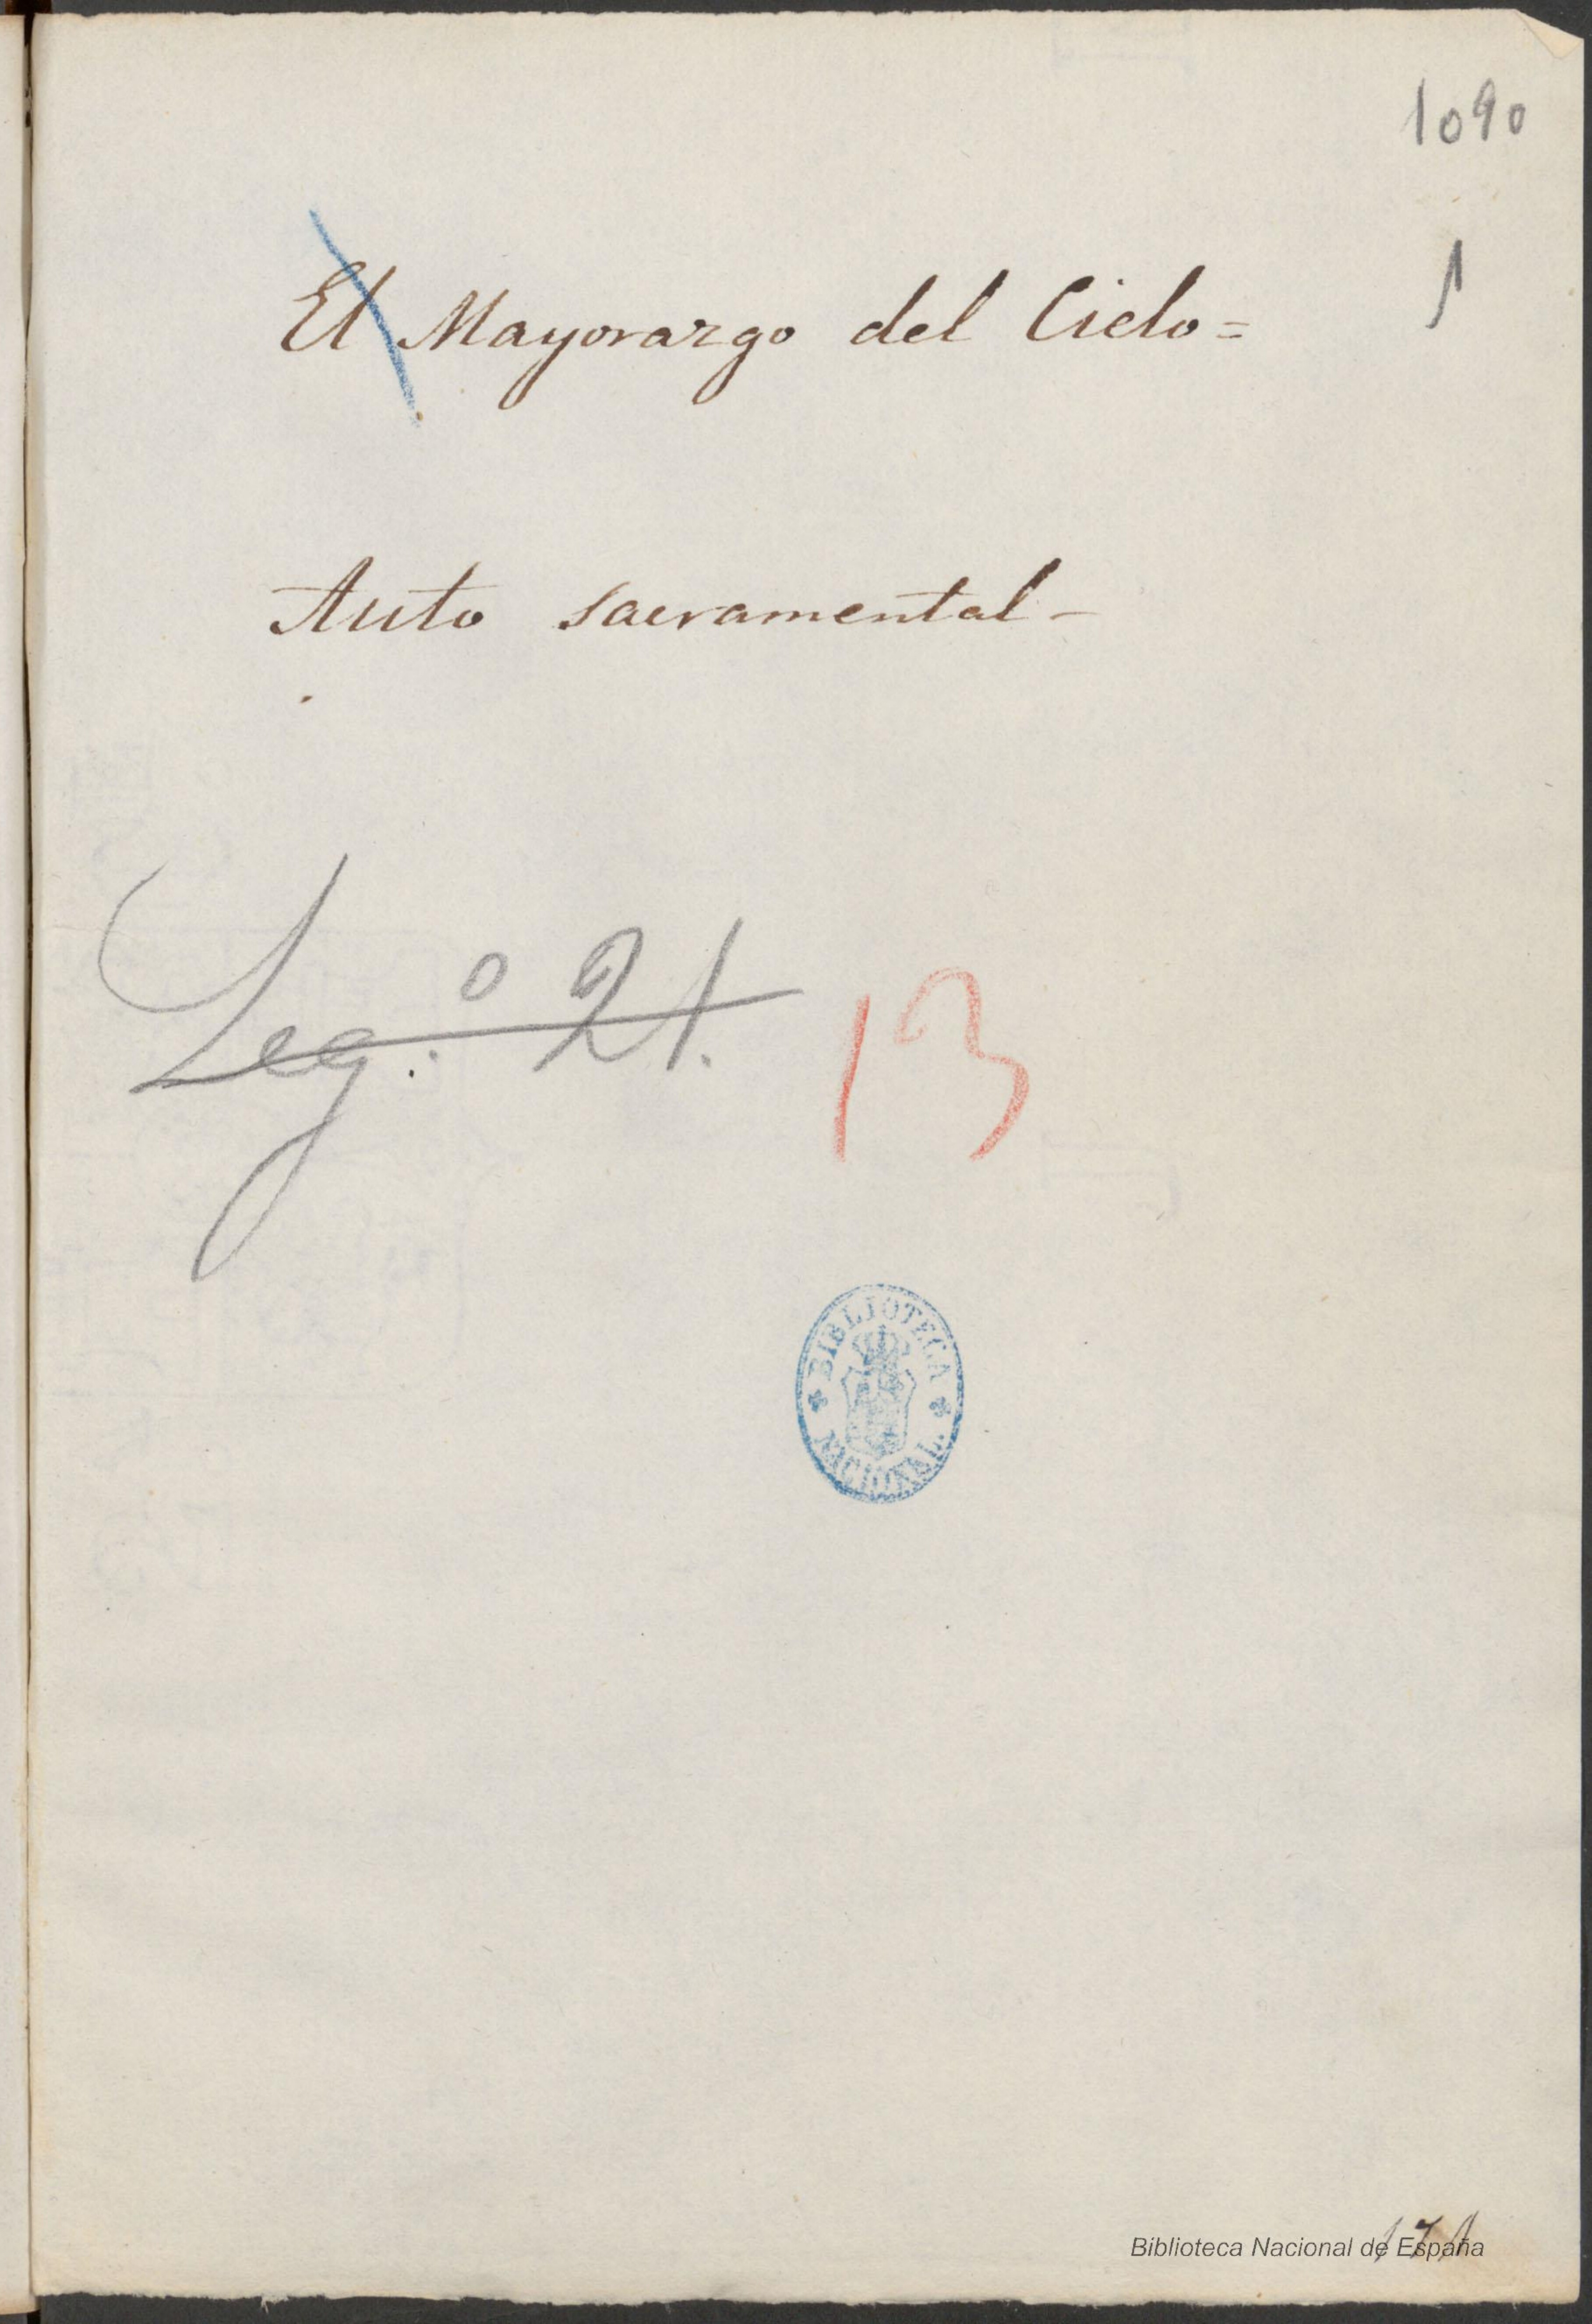 1090
1
El Mayorazgo del Cielo=
Auto sacramental-
Leg.º 21.
13
BIBLIOTECA
NACIONAL.
171
Biblioteca Nacional de España